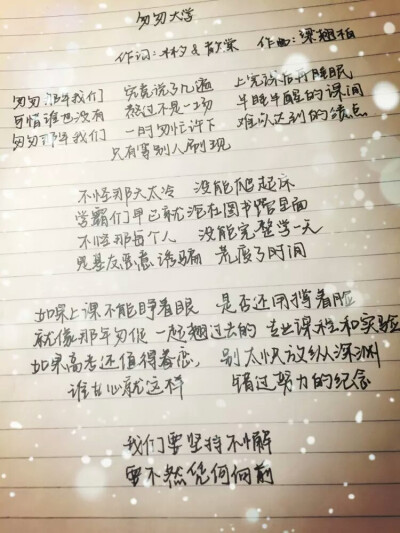 匆匆大学
作词:林夕 散棠 作曲:梁翘柏
匆匆那年我们 究竟说了几遍 上完课后再睡眠
可惜谁也没有 熬过不是一场 半睡半醒的课间
匆匆那年我们 一时匆忙许下 难以达到的绩点
只有等别人刷现
不怪那天太冷 没能爬起床
学霸们早已就泡在图书馆里面
不怪那每个人 没能完整学一天
兄基友愿意诱骗 荒废了时间
如果上课不能睁着眼 是否还用撑着脸
就像那年匆促 一起翘过去的 专业课程和实验
如果高考还值得眷恋, 别太快放纵深渊
谁甘心就这样 错过努力的纪念
我们要坚持不懈
要不然凭何向前